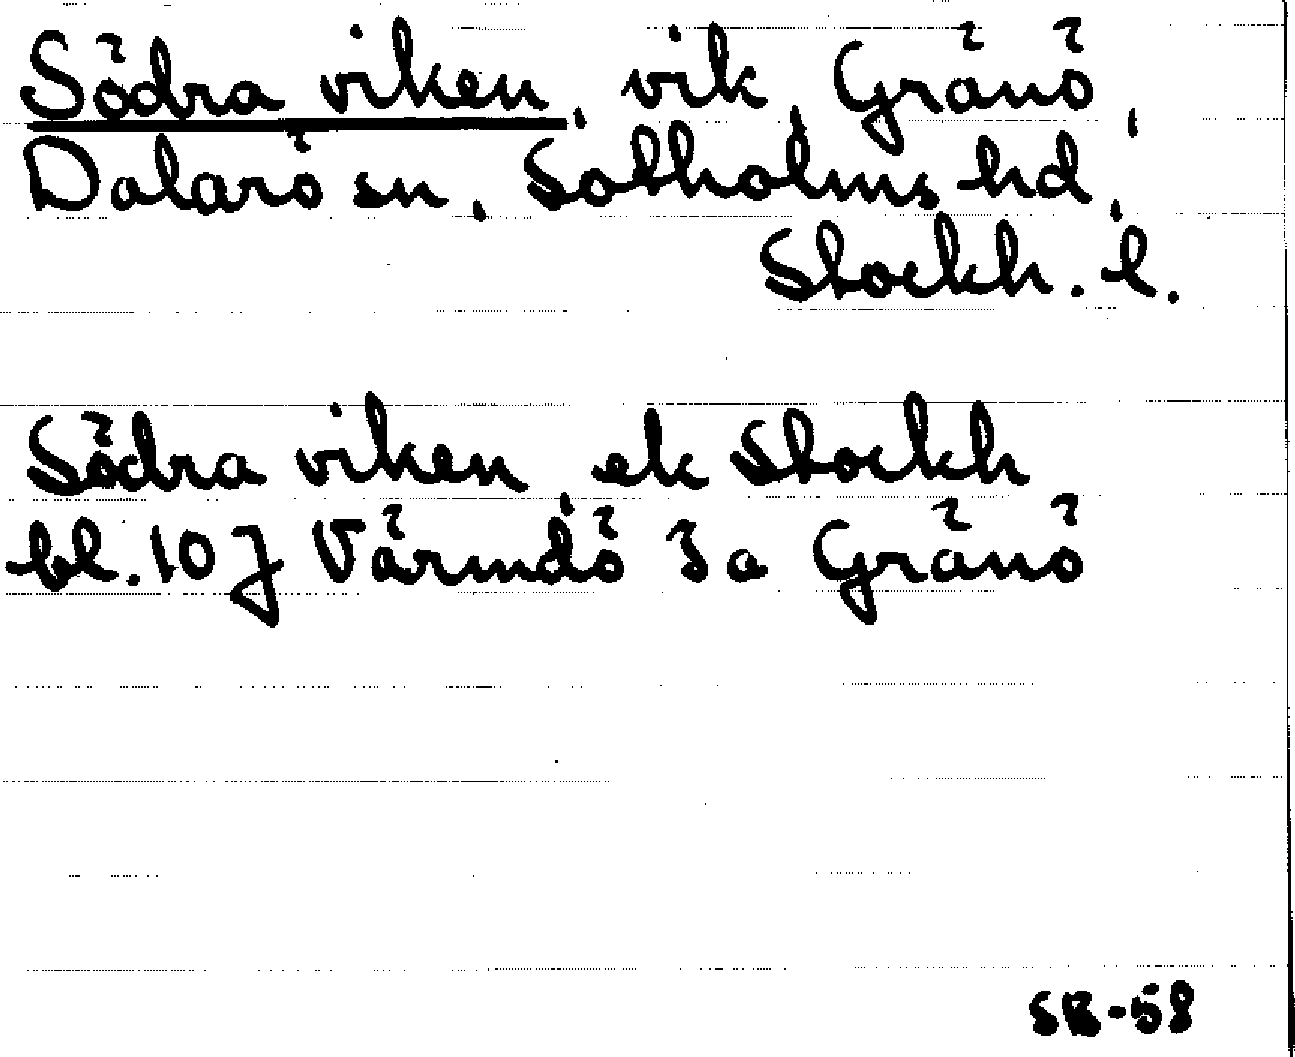 Södra viken, vik, Gränö,
Dalarö sn, Sotholms hd,
Stockh. l.
Södra viken, ek Stockh
bl. 107 Värmdö 3a Gränö
SB-58